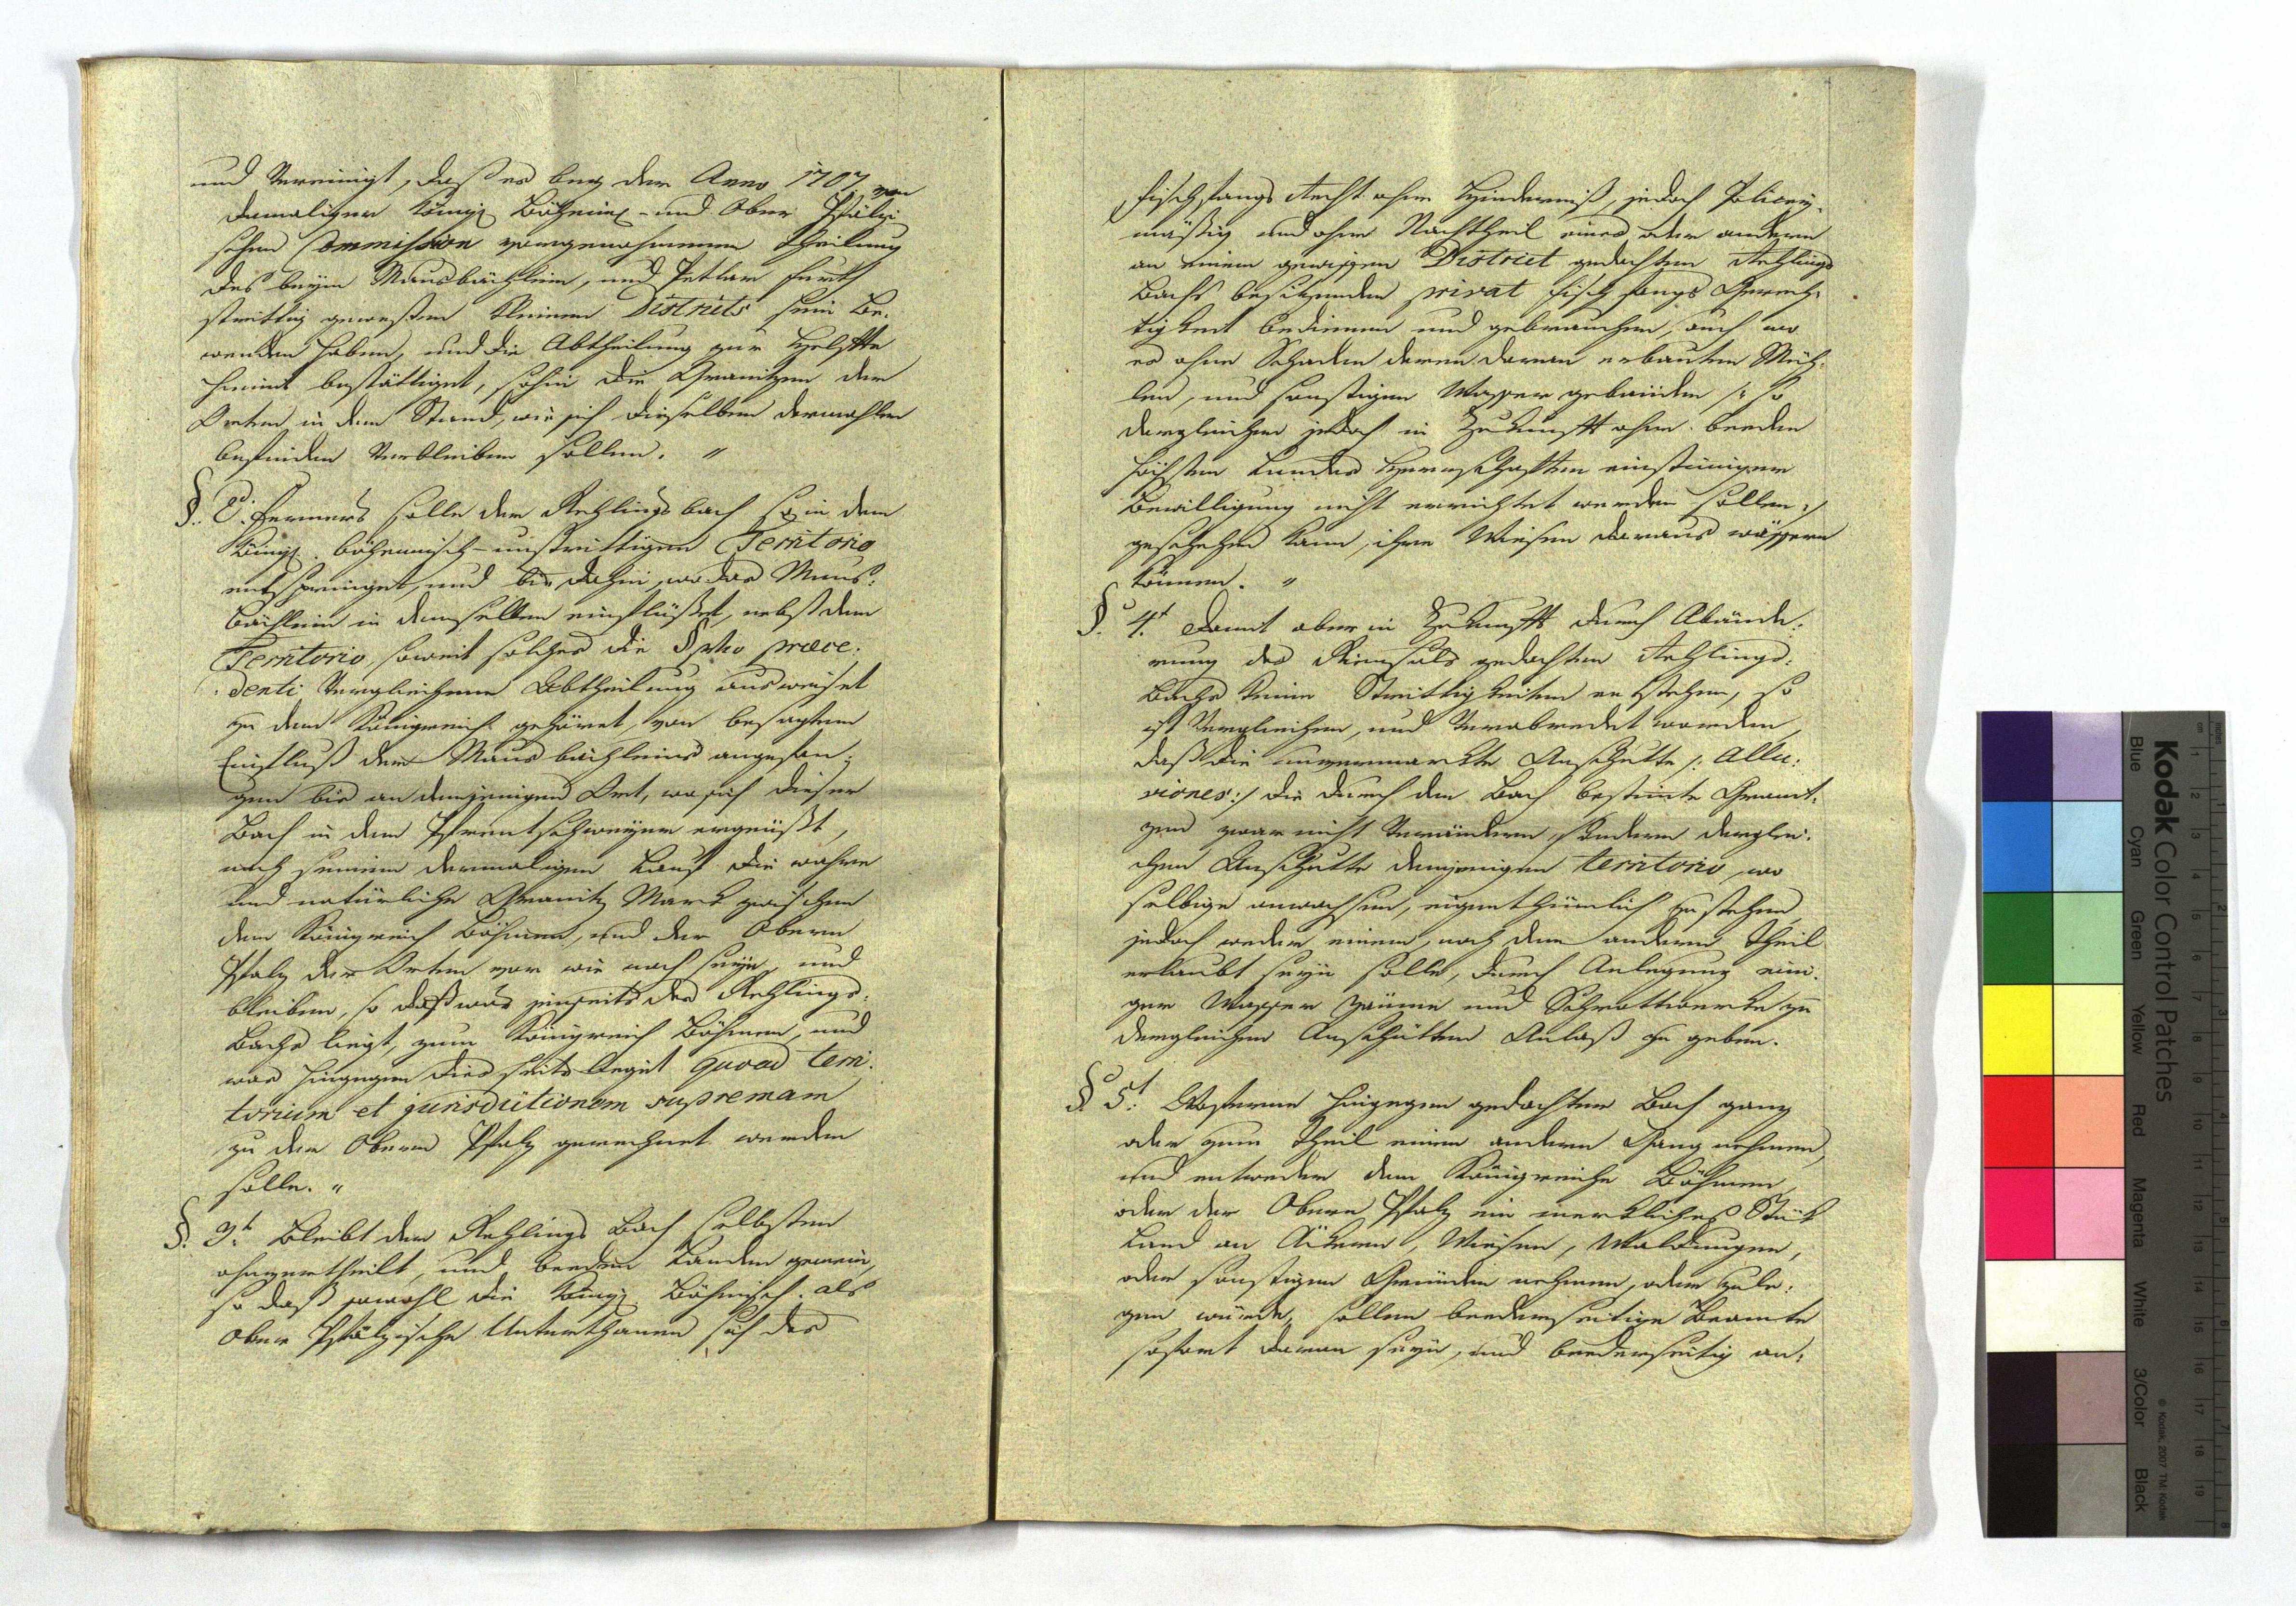 und Vereinigt, daß es bey der Anno 1707 von
damaliger Königl Böheimb- und Ober Pfälzi
schen Commission vorgenohmmener Theilung
des beym Mausbächlein, und Petlar furth
strittig gewesten kleinen Districts sein Be:
wenden haben, und die Abtheilung zur Helfte
hiemit bestättiget, sohin die Granitzen der
Orten in dem Stand, wie sich dieselben dermahlen
befinden Verbleiben sollen. "
§. 2. Ferners solle der Rehlingsbach so in dem
Königl. böhemisch-unstrittigen Territorio
entspringet, und bis dahin, wo das Maus:
bächlein in demselben einflüßet, nebst dem
Territorio, soweit solches die §pho præce:
denti Verglichene Abtheilung ausweiset
zu dem Königreich gehöret, von besagtem
Einfluß des Mausbächleins angefan:
gen bis an demjenigen Ort, wo sich dieser
Bach in dem Pfrentschweyer ergeüßt,
nach seinem dermaligen Lauf die wahre
und natürliche Granitz Mark zwischen
dem Königreich Böhmen, und der Obern
Pfalz der Orten vor wie nach seyn, und
bleiben, so daß was jenseits des Rehlings:
Bachs liegt, zum Königreich Böhmen, und
was hingegen dies seits lieget quoad terri:
torium et jurisdictionem supremam
zu der Obern Pfalz gerechnet werden
solle. "
§. 3t. Bleibt der Rehlings Bach selbsten
ohnzertheilt, und beeden Landen gemein,
so daß sowohl die Königl Böhmisch. als
Ober Pfälzische Unterthanen sich des
Fischfangs Recht ohne Hinderniß, jedoch Policey-
mäßig und ohne Nachtheil eines oder andern
an einem gewißen District gedachten Rehlings
Bachs besitzenden privat fischfangs Gerech:
tigkeit bedienen und gebrauchen, auch wo
es ohne Schaden deren daran erbauten Müh:
len, und sonstigen Wasser gebäuden /: so
dergleichen jedoch in Zukunfft ohne beeder
höchsten Landes Herrschafften einstimmigen
Bewilligung nicht errichtet werden sollen :/
geschehen kann, ihre Wiesen daraus wässern
können. "
§. 4t. Damit aber in Zukunfft durch Abände:
rung des Rinnsals gedachten Rehlings:
Bachs keine Strittigkeiten entstehen, so
ist Verglichen, und Verabredet worden,
daß die unvermarkte Anschütte /: Allu:
viones :/ die durch den Bach bestimte Granit:
zen zwar nicht Verändern, sondern derglei:
chen Anschütte demjenigen territorio, wo
selbige anwachsen, eigenthümlich zustehen,
jedoch weder einem, noch dem anderen Theil
erlaubt seyn solle, durch Anlegung eini:
ger Wasser Zäune und Schrottwerke zu
dergleichen Anschütten Anlaß zu geben.
§. 5t. Woferne hingegen gedachter Bach ganz
oder zum Theil einen andern Gang nehmen,
und entweder dem Königreiche Böhmen
oder der Obern Pfalz ein merkliches Stük
Land an Äkern, Wiesen, Waldungen,
oder sonstigen Gründen nehmen, oder zule:
gen würde, sollen beederseitige Beamte
sofort daran seyn, und beederseitig an:
Kodak Color Control Patches
Blue Cyan Green Yellow Red Magenta White 3/Color Black
© Kodak, 2007 TM: Kodak